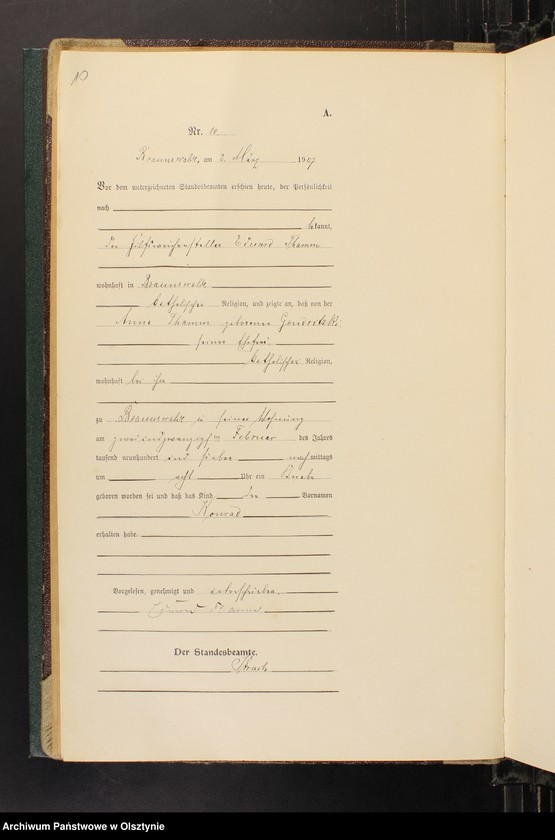 10
A.
Nr. 10
Braunswalde, am 2. März 1907
Vor dem unterzeichneten Standesbeamten erschien heute, der Persönlichkeit
nach
bekannt,
der Hilfsweichensteller Eduard Thamm
wohnhaft in Braunswalde
katholischer Religion, und zeigte an, daß von der
Anna Thamm geborene
seiner Ehefrau
katholischer Religion,
wohnhaft bei ihm
zu Braunswalde in seiner Wohnung
am zweiundzwanzigsten Februar des Jahres
tausend neunhundert und sieben nachmittags
um acht Uhr ein Knabe
geboren worden sei und daß das Kind den Vornamen
Konrad
erhalten habe.
Vorgelesen, genehmigt und unterschrieben.
Eduard Thamm
Der Standesbeamte.
Archiwum Państwowe w Olsztynie